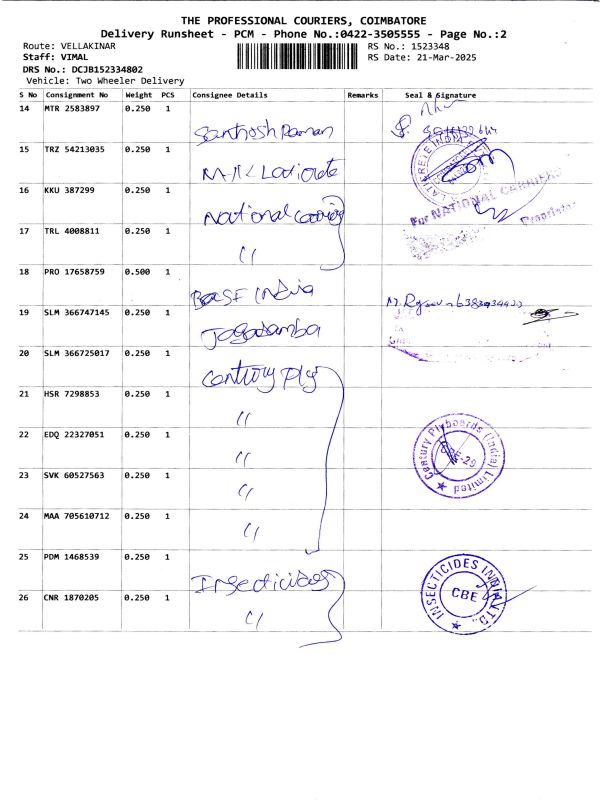 THE PROFESSIONAL COURIERS, COIMBATORE
Delivery Runsheet - PCM - Phone No.:0422-3505555 - Page No.:2
Route: VELLAKINAR
RS No.: 1523348
Staff: VIMAL
RS Date: 21-Mar-2025
DRS No.: DCJB152334802
Vehicle: Two Wheeler Delivery
S No Consignment No Weight PCS Consignee Details Remarks Seal & Signature
14 MTR 2583897 0.250 1
Santhosh Raman
15 TRZ 54213035 0.250 1
16 KKU 387299 0.250 1
National
For NATIONAL CARRIERS
Proprietor
17 TRL 4008811 0.250 1
"
18 PRO 17658759 0.500 1
BASF India
19 SLM 366747145 0.250 1
Jagadamba
20 SLM 366725017 0.250 1
Century Ply
21 HSR 7298853 0.250 1
"
22 EDQ 22327051 0.250 1
"
Century Plyboards (India) Limited
23 SVK 60527563 0.250 1
"
24 MAA 705610712 0.250 1
"
25 PDM 1468539 0.250 1
Insecticides
26 CNR 1870205 0.250 1
"
INSECTICIDES INDIA LTD.,
CBE